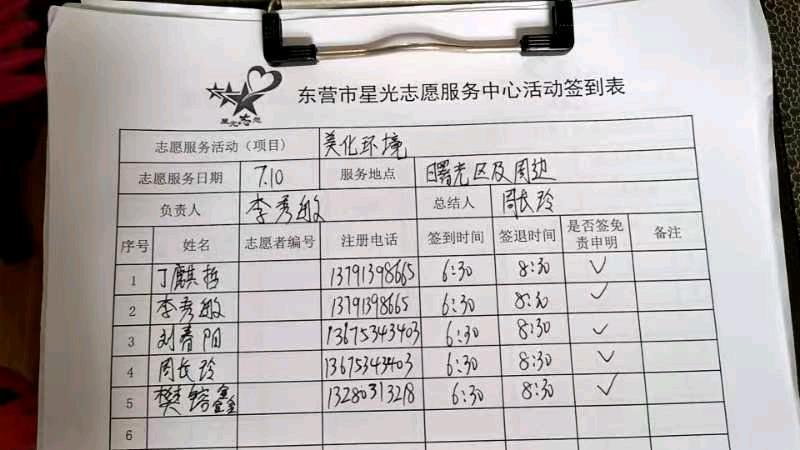 星光志愿
东营市星光志愿服务中心活动签到表
志愿服务活动（项目） 美化环境
志愿服务日期 7.10 服务地点 曙光区及周边
负责人 李秀敏 总结人 周长玲
序号 姓名 志愿者编号 注册电话 签到时间 签退时间 是否签免责申明 备注
1 丁麒哲 13791398665 6:30 8:30 ✓
2 李秀敏 13791398665 6:30 8:30 ✓
3 刘春阳 13675343403 6:30 8:30 ✓
4 周长玲 13675343403 6:30 8:30 ✓
5 樊镕鑫 13280313218 6:30 8:30 ✓
6